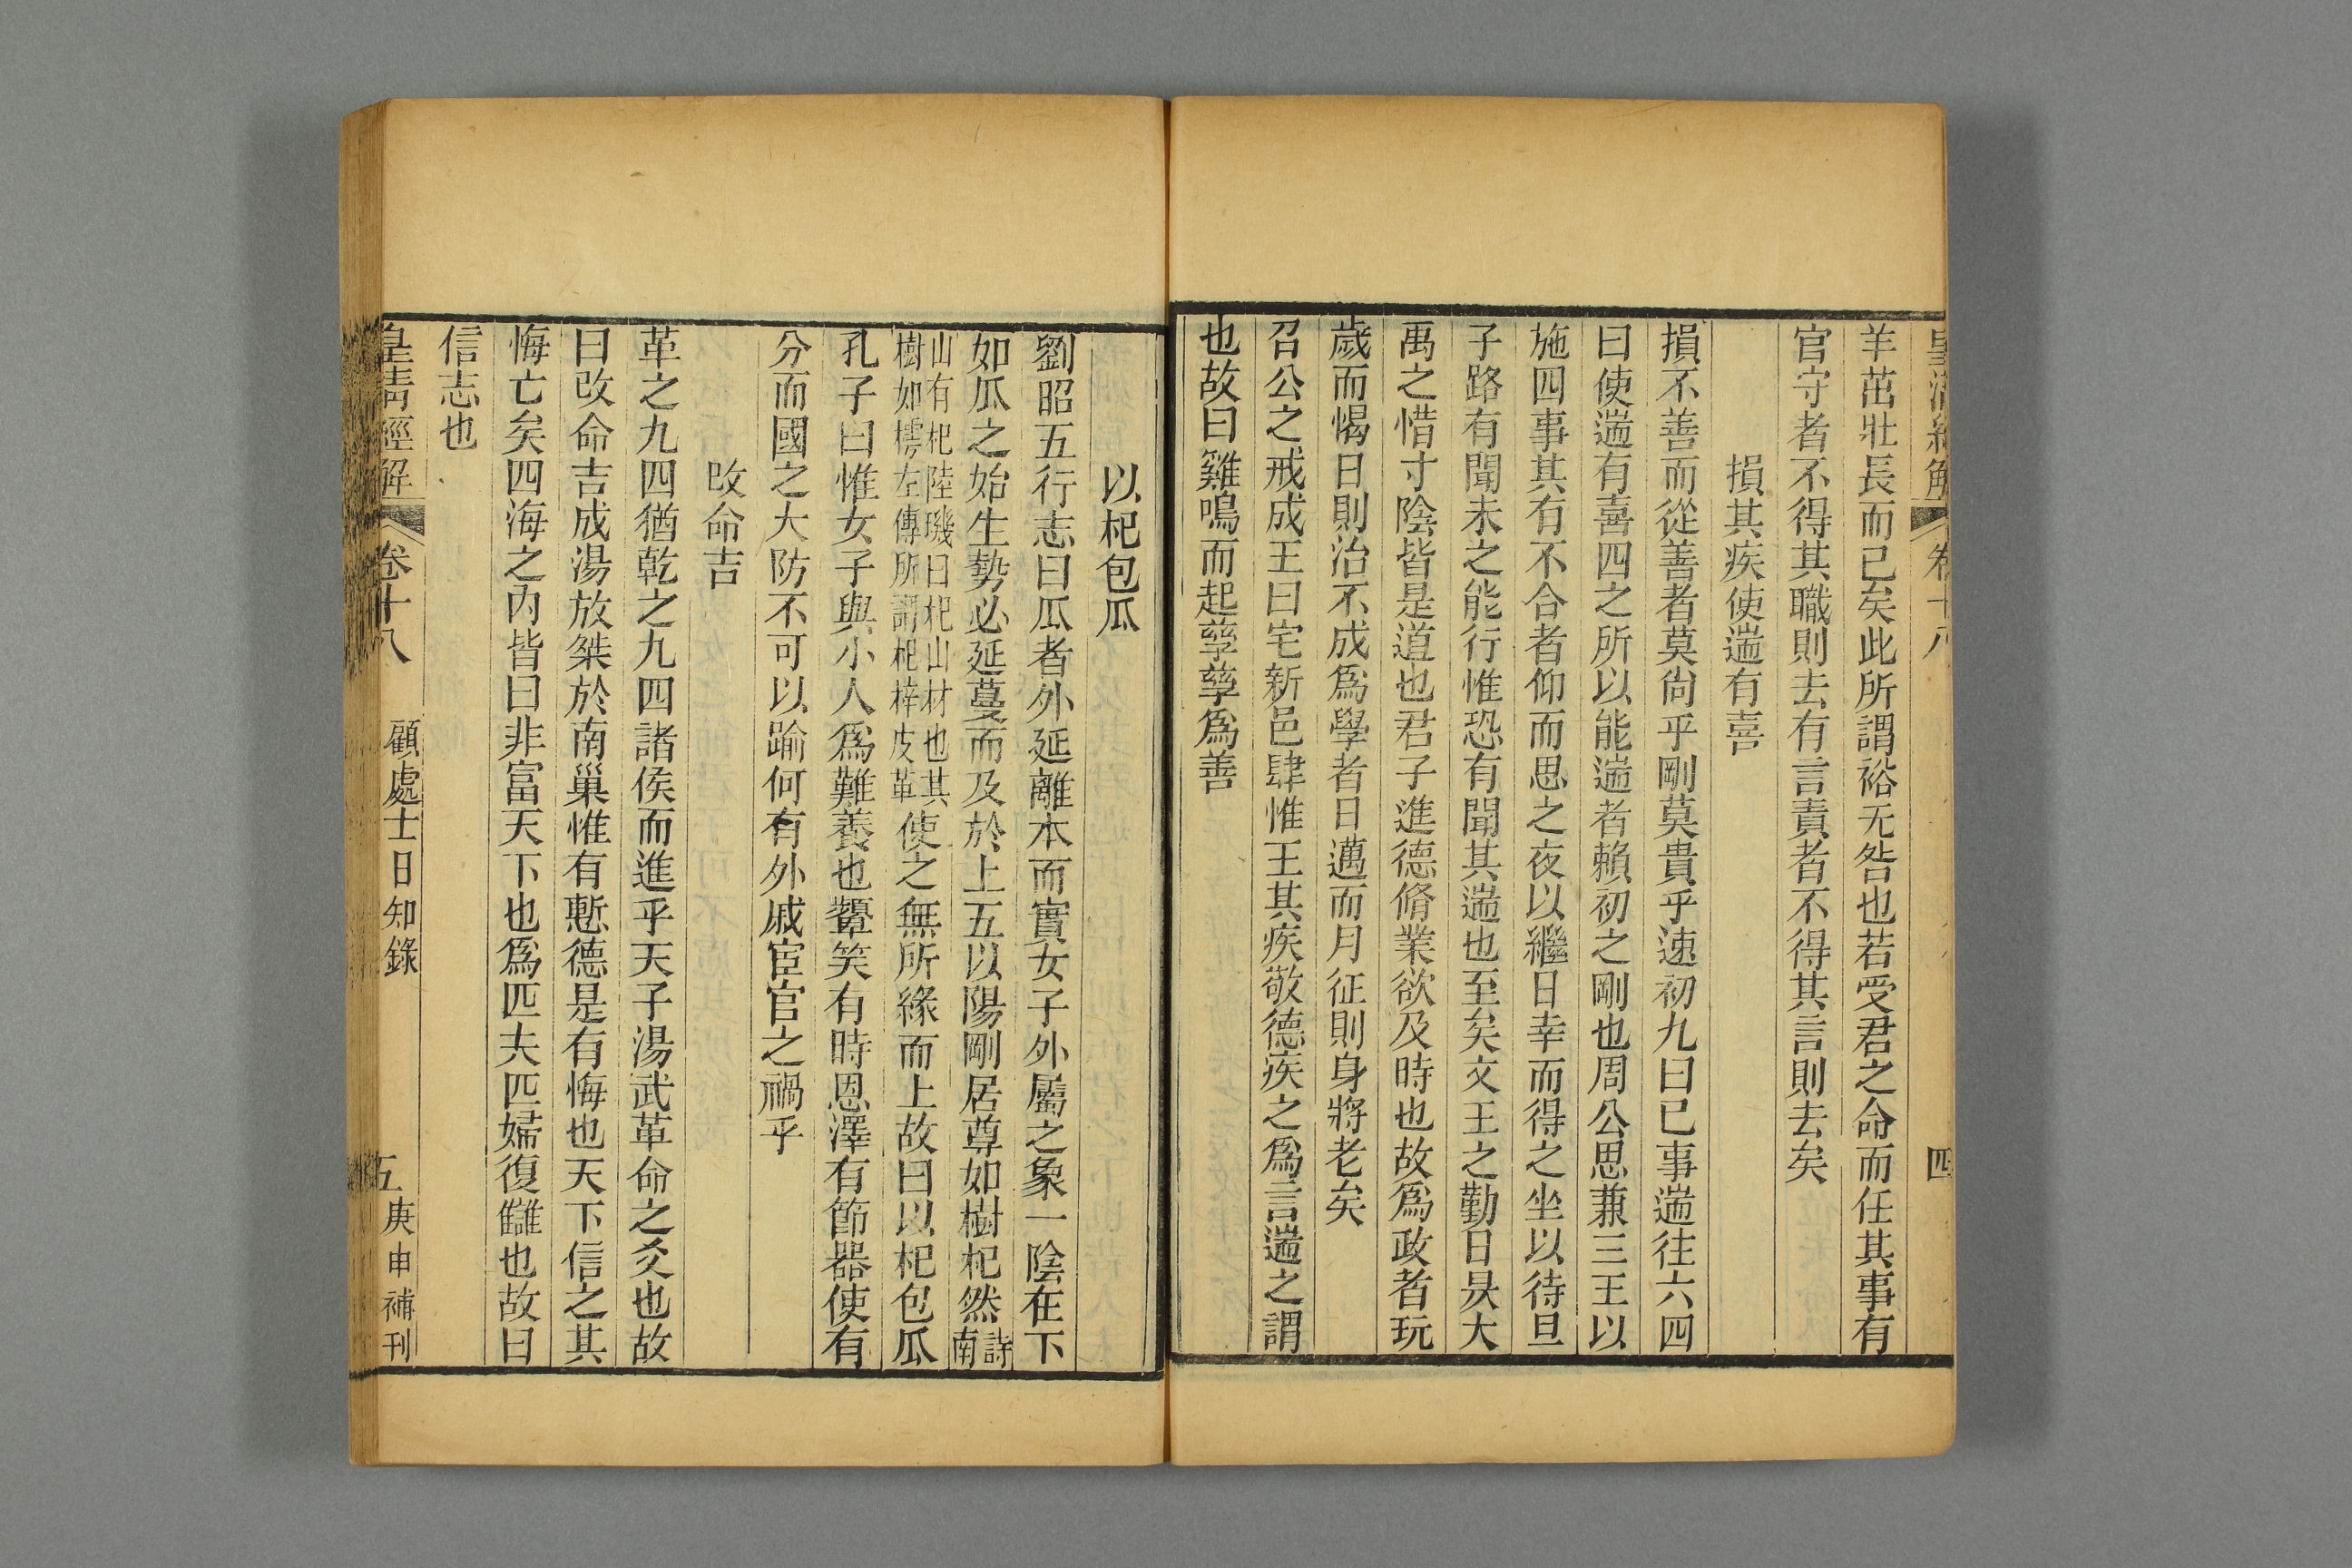 皇清經解 卷十八 四
羊茁壯長而已矣此所謂裕无咎也若受君之命而任其事有
官守者不得其職則去有言責者不得其言則去矣
損其疾使遄有喜
損不善而從善者莫尙乎剛莫貴乎速初九曰已事遄往六四
曰使遄有喜四之所以能遄者賴初之剛也周公思兼三王以
施四事其有不合者仰而思之夜以繼日幸而得之坐以待旦
子路有聞未之能行惟恐有聞其遄也至矣文王之勤日昃大
禹之惜寸陰皆是道也君子進德脩業欲及時也故爲政者玩
歲而愒日則治不成爲學者日邁而月征則身將老矣
召公之戒成王曰宅新邑肆惟王其疾敬德疾之爲言遄之謂
也故曰雞鳴而起孳孳爲善
以杞包瓜
劉昭五行志曰瓜者外延離本而實女子外屬之象一陰在下
如瓜之始生勢必延蔓而及於上五以陽剛居尊如樹杞然詩南
山有杞陸璣曰杞山材也其樹如樗左傳所謂杞梓皮革使之無所緣而上故曰以杞包瓜
孔子曰惟女子與小人爲難養也顰笑有時恩澤有節器使有
分而國之大防不可以踰何有外戚宦官之禍乎
改命吉
革之九四猶乾之九四諸侯而進乎天子湯武革命之爻也故
曰改命吉成湯放桀於南巢惟有慙德是有悔也天下信之其
悔亡矣四海之內皆曰非富天下也爲匹夫匹婦復讎也故曰
信志也
皇清經解 卷十八 顧處士日知錄 五 庚申補刊